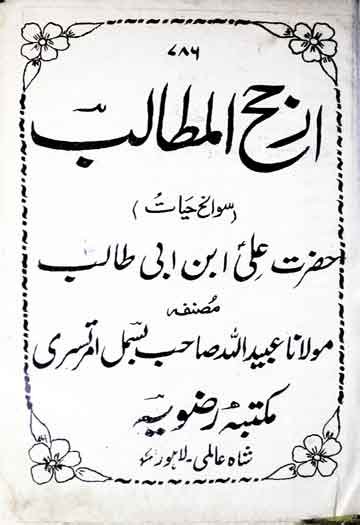 ۷۸۶
ارجح المطالب
(سوانح حیات)
حضرت علیؑ ابن ابی طالب
مصنفہ
مولانا عبید اللہ صاحب بسمل امرتسری
مکتبہ رضویہ
شاہ عالمی - لاہور